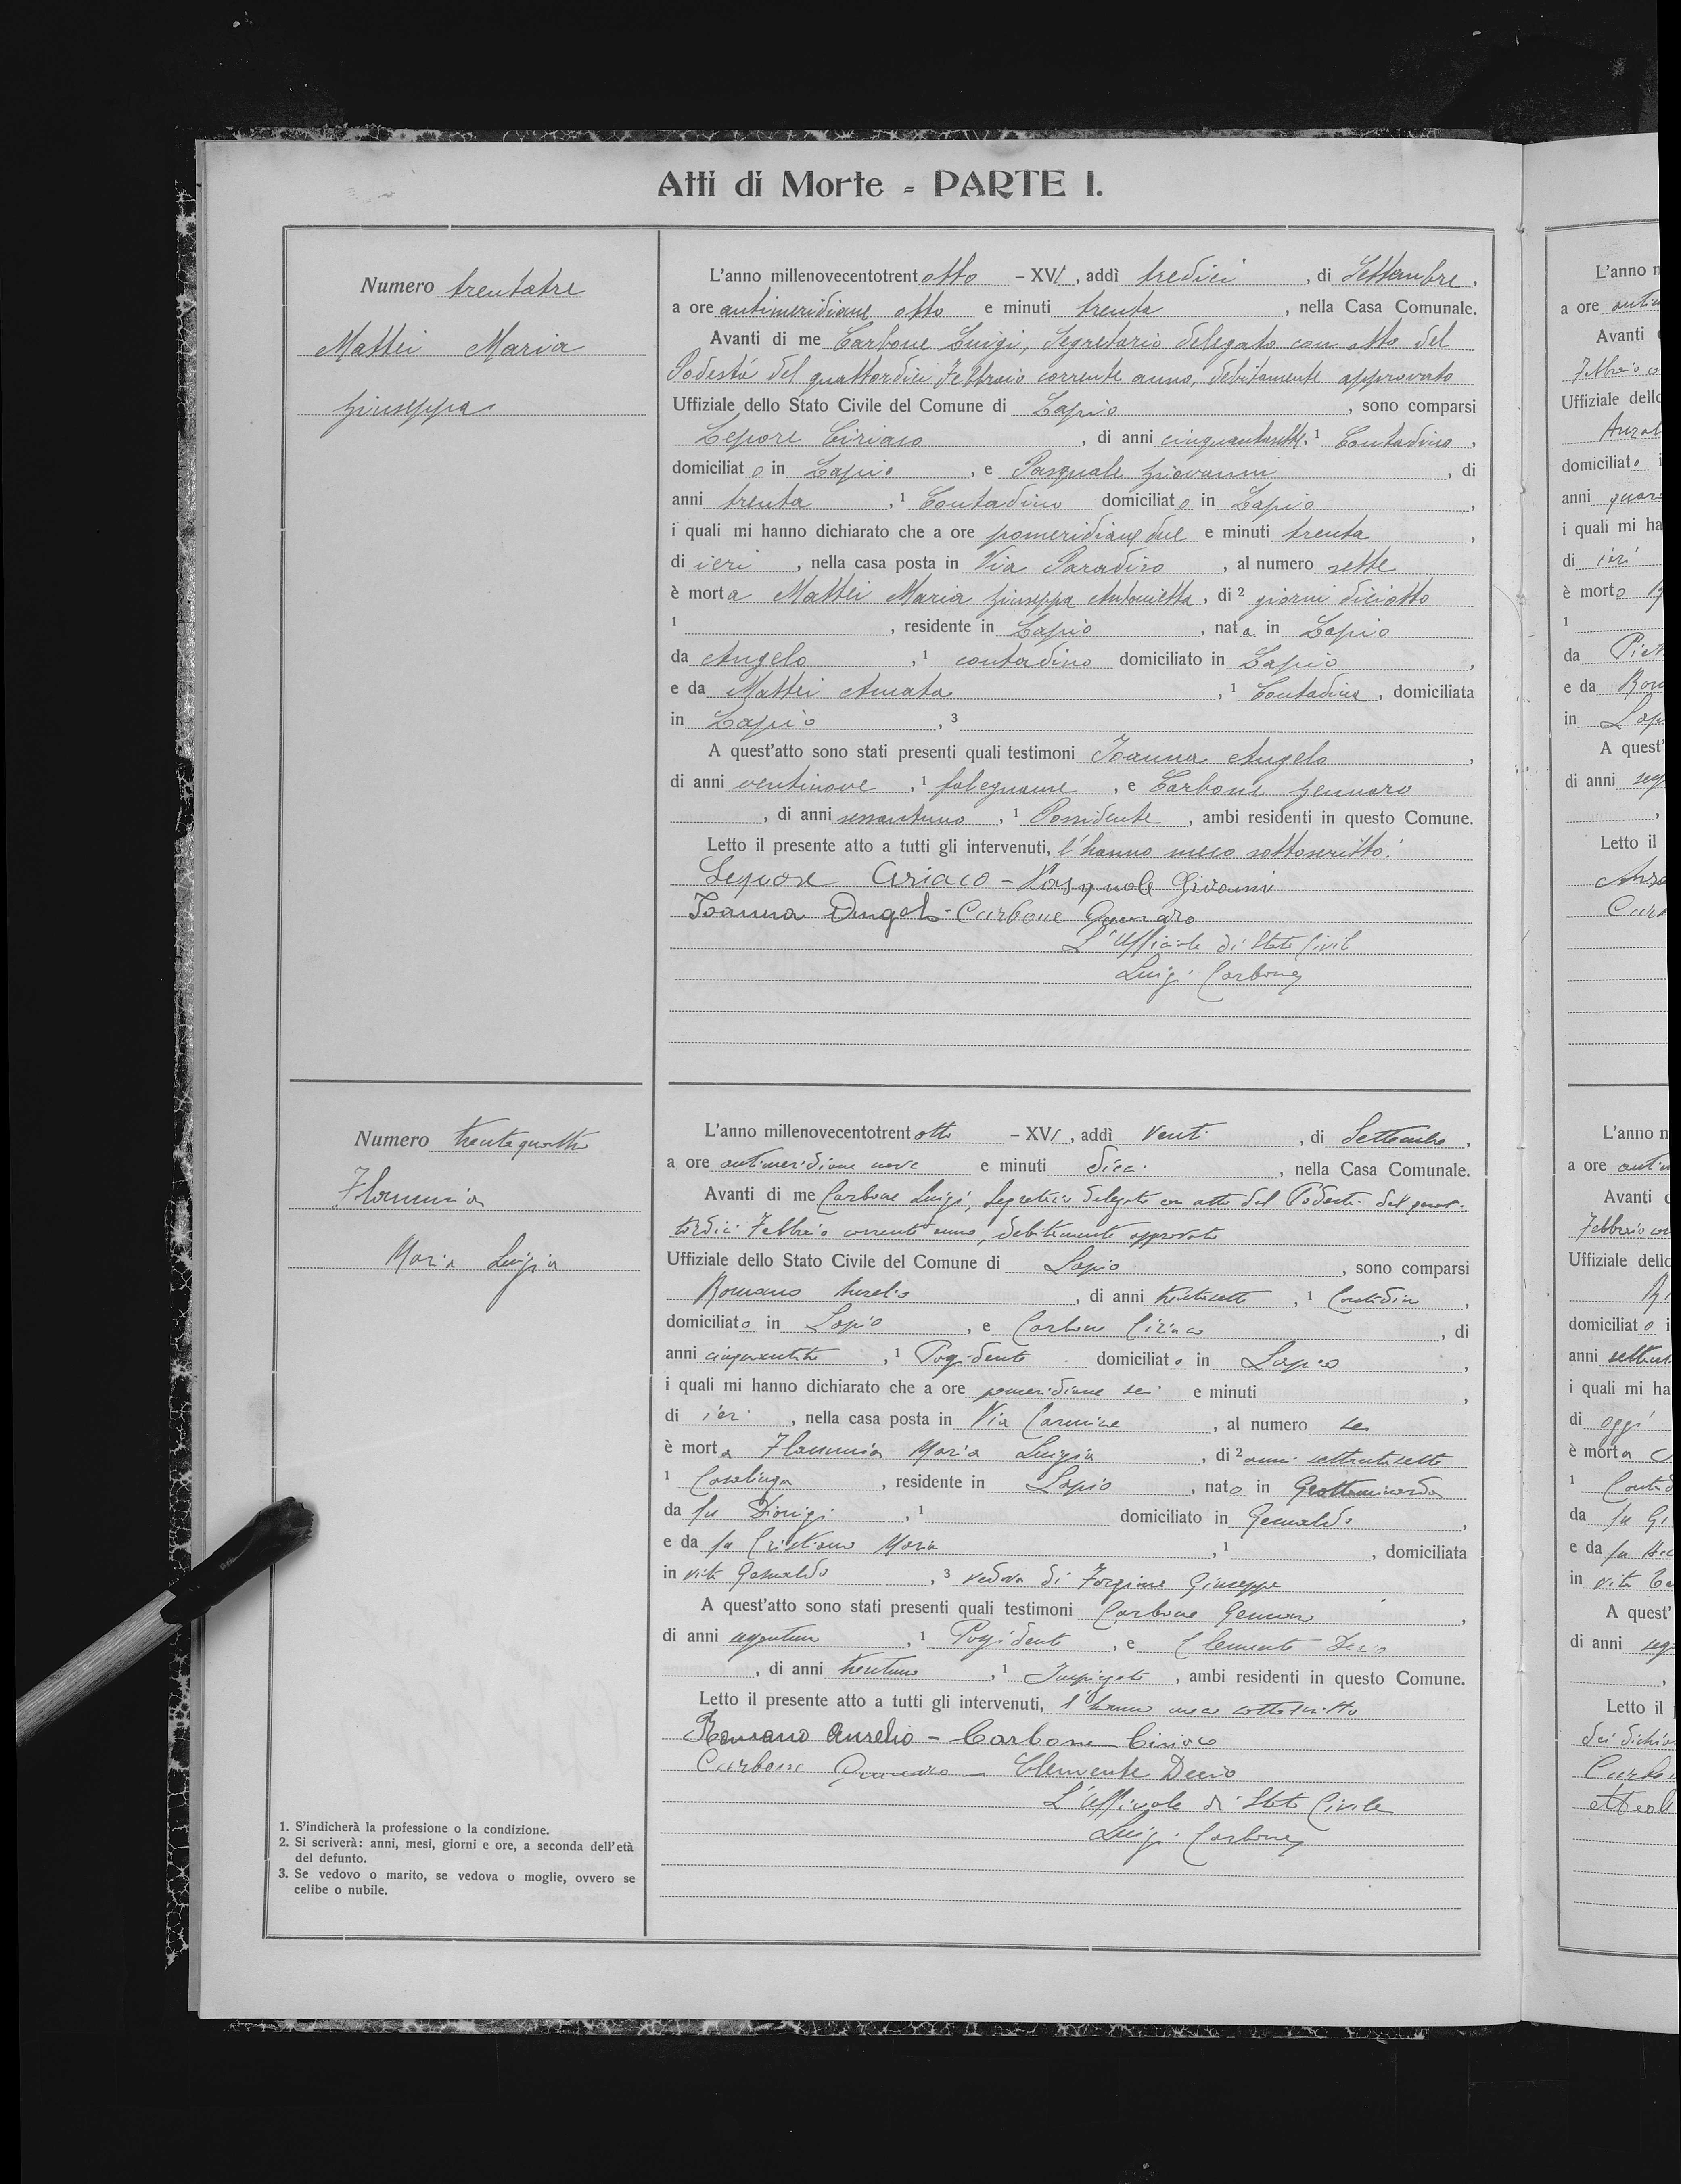 Atti di Morte - PARTE I.
Numero trentatre
Mattei Maria
Giuseppa
L'anno millenovecentotrentotto - XVI, addì tredici, di Settembre,
a ore antimeridiane otto e minuti trenta, nella Casa Comunale.
Avanti di me Carbone Luigi, Segretario delegato con atto del
Podestá del quattordici Febbraio corrente anno, debitamente approvato
Uffiziale dello Stato Civile del Comune di Lapio, sono comparsi
Lepore Ciriaco, di anni cinquantasette, 1 Contadino,
domiciliato in Lapio, e Pasquale Giovanni, di
anni trenta, 1 Contadino domiciliato in Lapio,
i quali mi hanno dichiarato che a ore pomeridiane due e minuti trenta,
di ieri, nella casa posta in Via Paradiso, al numero sette
è morta Mattei Maria Giuseppa Antonietta, di 2 giorni diciotto
1, residente in Lapio, nata in Lapio
da Angelo, 1 contadino domiciliato in Lapio,
e da Mattei Amata, 1 Contadina, domiciliata
in Lapio, 3
A quest'atto sono stati presenti quali testimoni Ioanna Angelo,
di anni ventinove, 1 falegname, e Carbone Gennaro
, di anni sessantuno, 1 Possidente, ambi residenti in questo Comune.
Letto il presente atto a tutti gli intervenuti, l'hanno meco sottoscritto.
Lepore Ciriaco - Pasquale Giovanni
Ioanna Angelo - Carbone Gennaro
L'Ufficiale di Stato Civile
Luigi Carbone
Numero trentaquattro
Flammia
Maria Luigia
L'anno millenovecentotrentotto - XVI, addì venti, di Settembre,
a ore antimeridiane nove e minuti dieci, nella Casa Comunale.
Avanti di me Carbone Luigi, Segretario delegato con atto del Podestà del quat-
tordici Febbraio corrente anno, debitamente approvato
Uffiziale dello Stato Civile del Comune di Lapio, sono comparsi
Romano Aurelio, di anni trentasette, 1 Contadino,
domiciliato in Lapio, e Carbone Ciriaco, di
anni 1 Possidente domiciliato in Lapio,
i quali mi hanno dichiarato che a ore pomeridiane sei e minuti,
di ieri, nella casa posta in Via Carmine, al numero sei
è morta Flammia Maria Luigia, di 2 anni settantasette
1 Casalinga, residente in Lapio, nata in Grottaminarda
da fu Dionigi, 1 domiciliato in Gesualdo,
e da fu Cristiano Maria, 1, domiciliata
in vita Gesualdo, 3 vedova di Forgione Giuseppe
A quest'atto sono stati presenti quali testimoni Carbone Gennaro,
di anni sessantuno, 1 Possidente, e Clemente Decio
, di anni trentuno, 1 Impiegato, ambi residenti in questo Comune.
Letto il presente atto a tutti gli intervenuti, l'hanno meco sottoscritto
Romano Aurelio - Carbone Ciriaco
Carbone Gennaro - Clemente Decio
L'Ufficiale di Stato Civile
Luigi Carbone
1. S'indicherà la professione o la condizione.
2. Si scriverà: anni, mesi, giorni e ore, a seconda dell'età
del defunto.
3. Se vedovo o marito, se vedova o moglie, ovvero se
celibe o nubile.
L'anno
a ore
Avanti
Febbraio
Uffiziale
domiciliato
anni
i quali mi ha
di ieri
è morto
1
da
e da
in
A quest'
di anni
Letto il
L'anno
a ore
Avanti
Febbraio
Uffiziale
domiciliato
anni
i quali mi ha
di oggi
è morta
1
da fu
e da fu
in vita
A quest'
di anni
Letto il